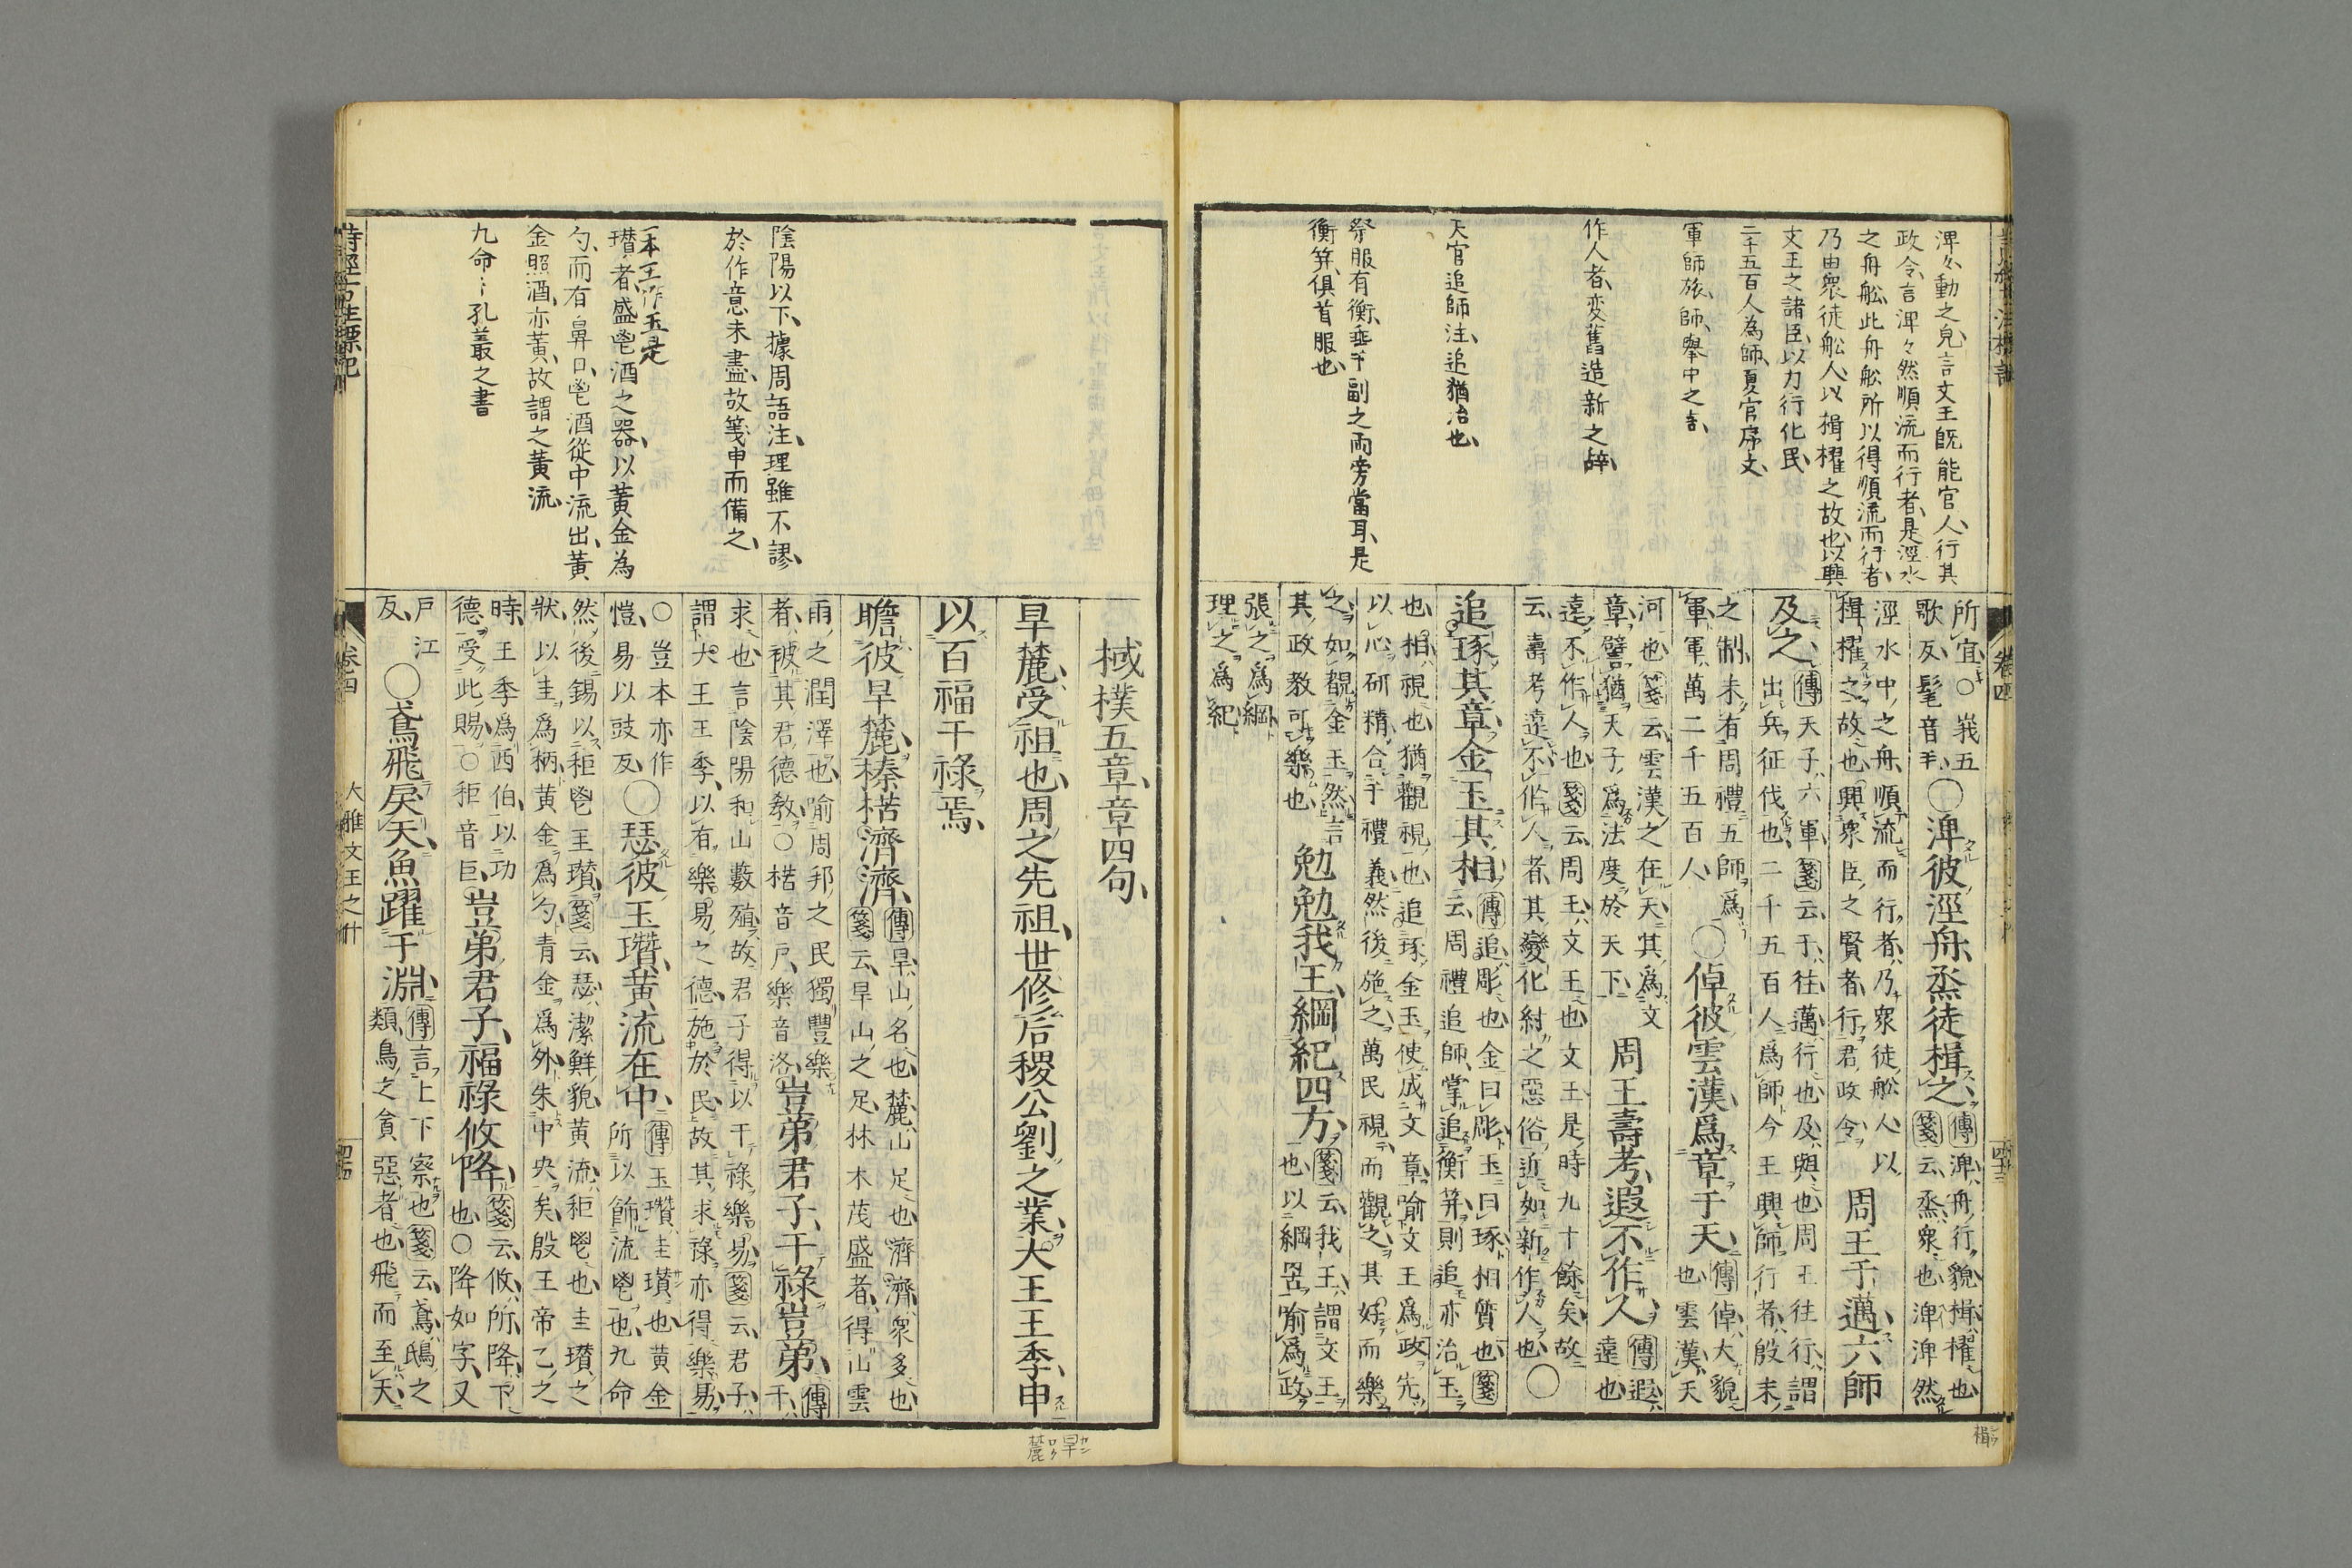 淠々動之皃言文王既能官人行其
政令言淠々然順流而行者是涇水
之舟舩此舟舩所以得順流而行者
乃由衆徒舩人以楫櫂之故也以興
文王之諸臣以力行化民
二千五百人為師夏官序文
軍師旅師舉中之言
作人者変舊造新之辞
天官追師注追猶治也
祭服有衡垂于副之兩旁當耳是
衡筓俱首服也
所宜○峩五
歌反髦音毛
○淠彼涇舟烝徒楫之
傳淠舟行貌楫櫂也
箋云烝衆也淠淠然
涇水中之舟順流而行者乃衆徒舩人以
楫櫂之故也興衆臣之賢者行君政令
周王于邁六師
及之
傳天子六軍箋云于往邁行也及與也周王往行謂
出兵征伐也二千五百人爲師今王興師行者殷末
之制未有周禮五師爲
軍軍萬二千五百人
○倬彼雲漢爲章于天
傳倬大貌
也雲漢天
河也箋云雲漢之在天其爲文
章譬猶天子爲法度於天下
周王壽考遐不作人
傳遐
遠也
遠不作人也箋云周王文王也文王是時九十餘矣故
云壽考遠不作人者其變化紂之惡俗近如新作人也
○
追琢其章金玉其相
傳追彫也金曰彫玉曰琢相質也箋
云周禮追師掌追衡筓則追亦治玉
也相視也猶觀視也追琢金玉使成文章喻文王爲政先
以心研精合于禮義然後施之萬民視而觀之其好而樂
之如覩金玉然言
其政教可樂也
勉勉我王綱紀四方
箋云我王謂文王
也以綱罟喻爲政
張之爲綱
理之爲紀
楫
陰陽以下據周語注理雖不謬
於作意未盡故箋申而備之
一本王作玉是
瓚者盛鬯酒之器以黄金為
勺而有鼻口鬯酒從中流出黄
金照酒亦黄故謂之黄流
九命ミ孔叢之書
棫樸五章章四句
旱麓受祖也周之先祖世修后稷公劉之業大王王季申
以百福干祿焉
瞻彼旱麓榛楛濟濟
傳旱山名也麓山足也濟濟衆多也
箋云旱山之足林木茂盛者得山雲
雨之潤澤也喻周邦之民獨豐樂
者被其君德教○楛音戶樂音洛
豈弟君子干祿豈弟
傳
干
求也言陰陽和山藪殖故君子得以干祿樂易箋云君子
謂大王王季以有樂易之德施於民故其求祿亦得樂易
○豈本亦作
愷易以豉反
○瑟彼玉瓚黄流在中
傳玉瓚圭瓚也黄金
所以飾流鬯也九命
然後錫以秬鬯王瓚箋云瑟潔鮮貌黄流秬鬯也圭瓚之
狀以圭爲柄黄金爲勺青金爲外朱中央矣殷王帝乙之
時王季爲西伯以功
德受此賜○秬音巨
豈弟君子福祿攸降
箋云攸所降下
也○降如字又
戶江
反
○鳶飛戾天魚躍于淵
傳言上下察也箋云鳶鴟之
類鳥之貪惡者也飛而至天
詩經古注標記
卷四
大雅文王之什
旱麓